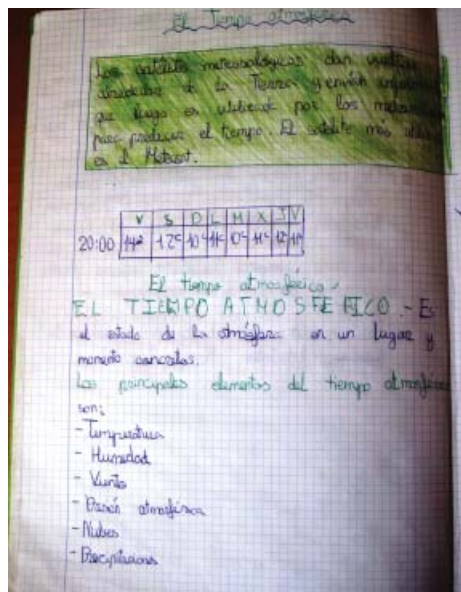 El Tiempo atmosférico
Los satélites meteorológicos dan vueltas
alrededor de la Tierra y envían
que luego es utilizada por los
para predecir el tiempo. El satélite más
es el Meteosat.
V S D L M X J V
20:00 14º 12º 10º 11º 10º 11º 12º 11º
El tiempo atmosférico.
EL TIEMPO ATMOSFERICO.- Es
el estado de la atmósfera en un lugar y
momento concretos.
Los principales elementos del tiempo atmosférico
son:
- Temperatura
- Humedad
- Viento
- Presión atmosférica
- Nubes
- Precipitaciones